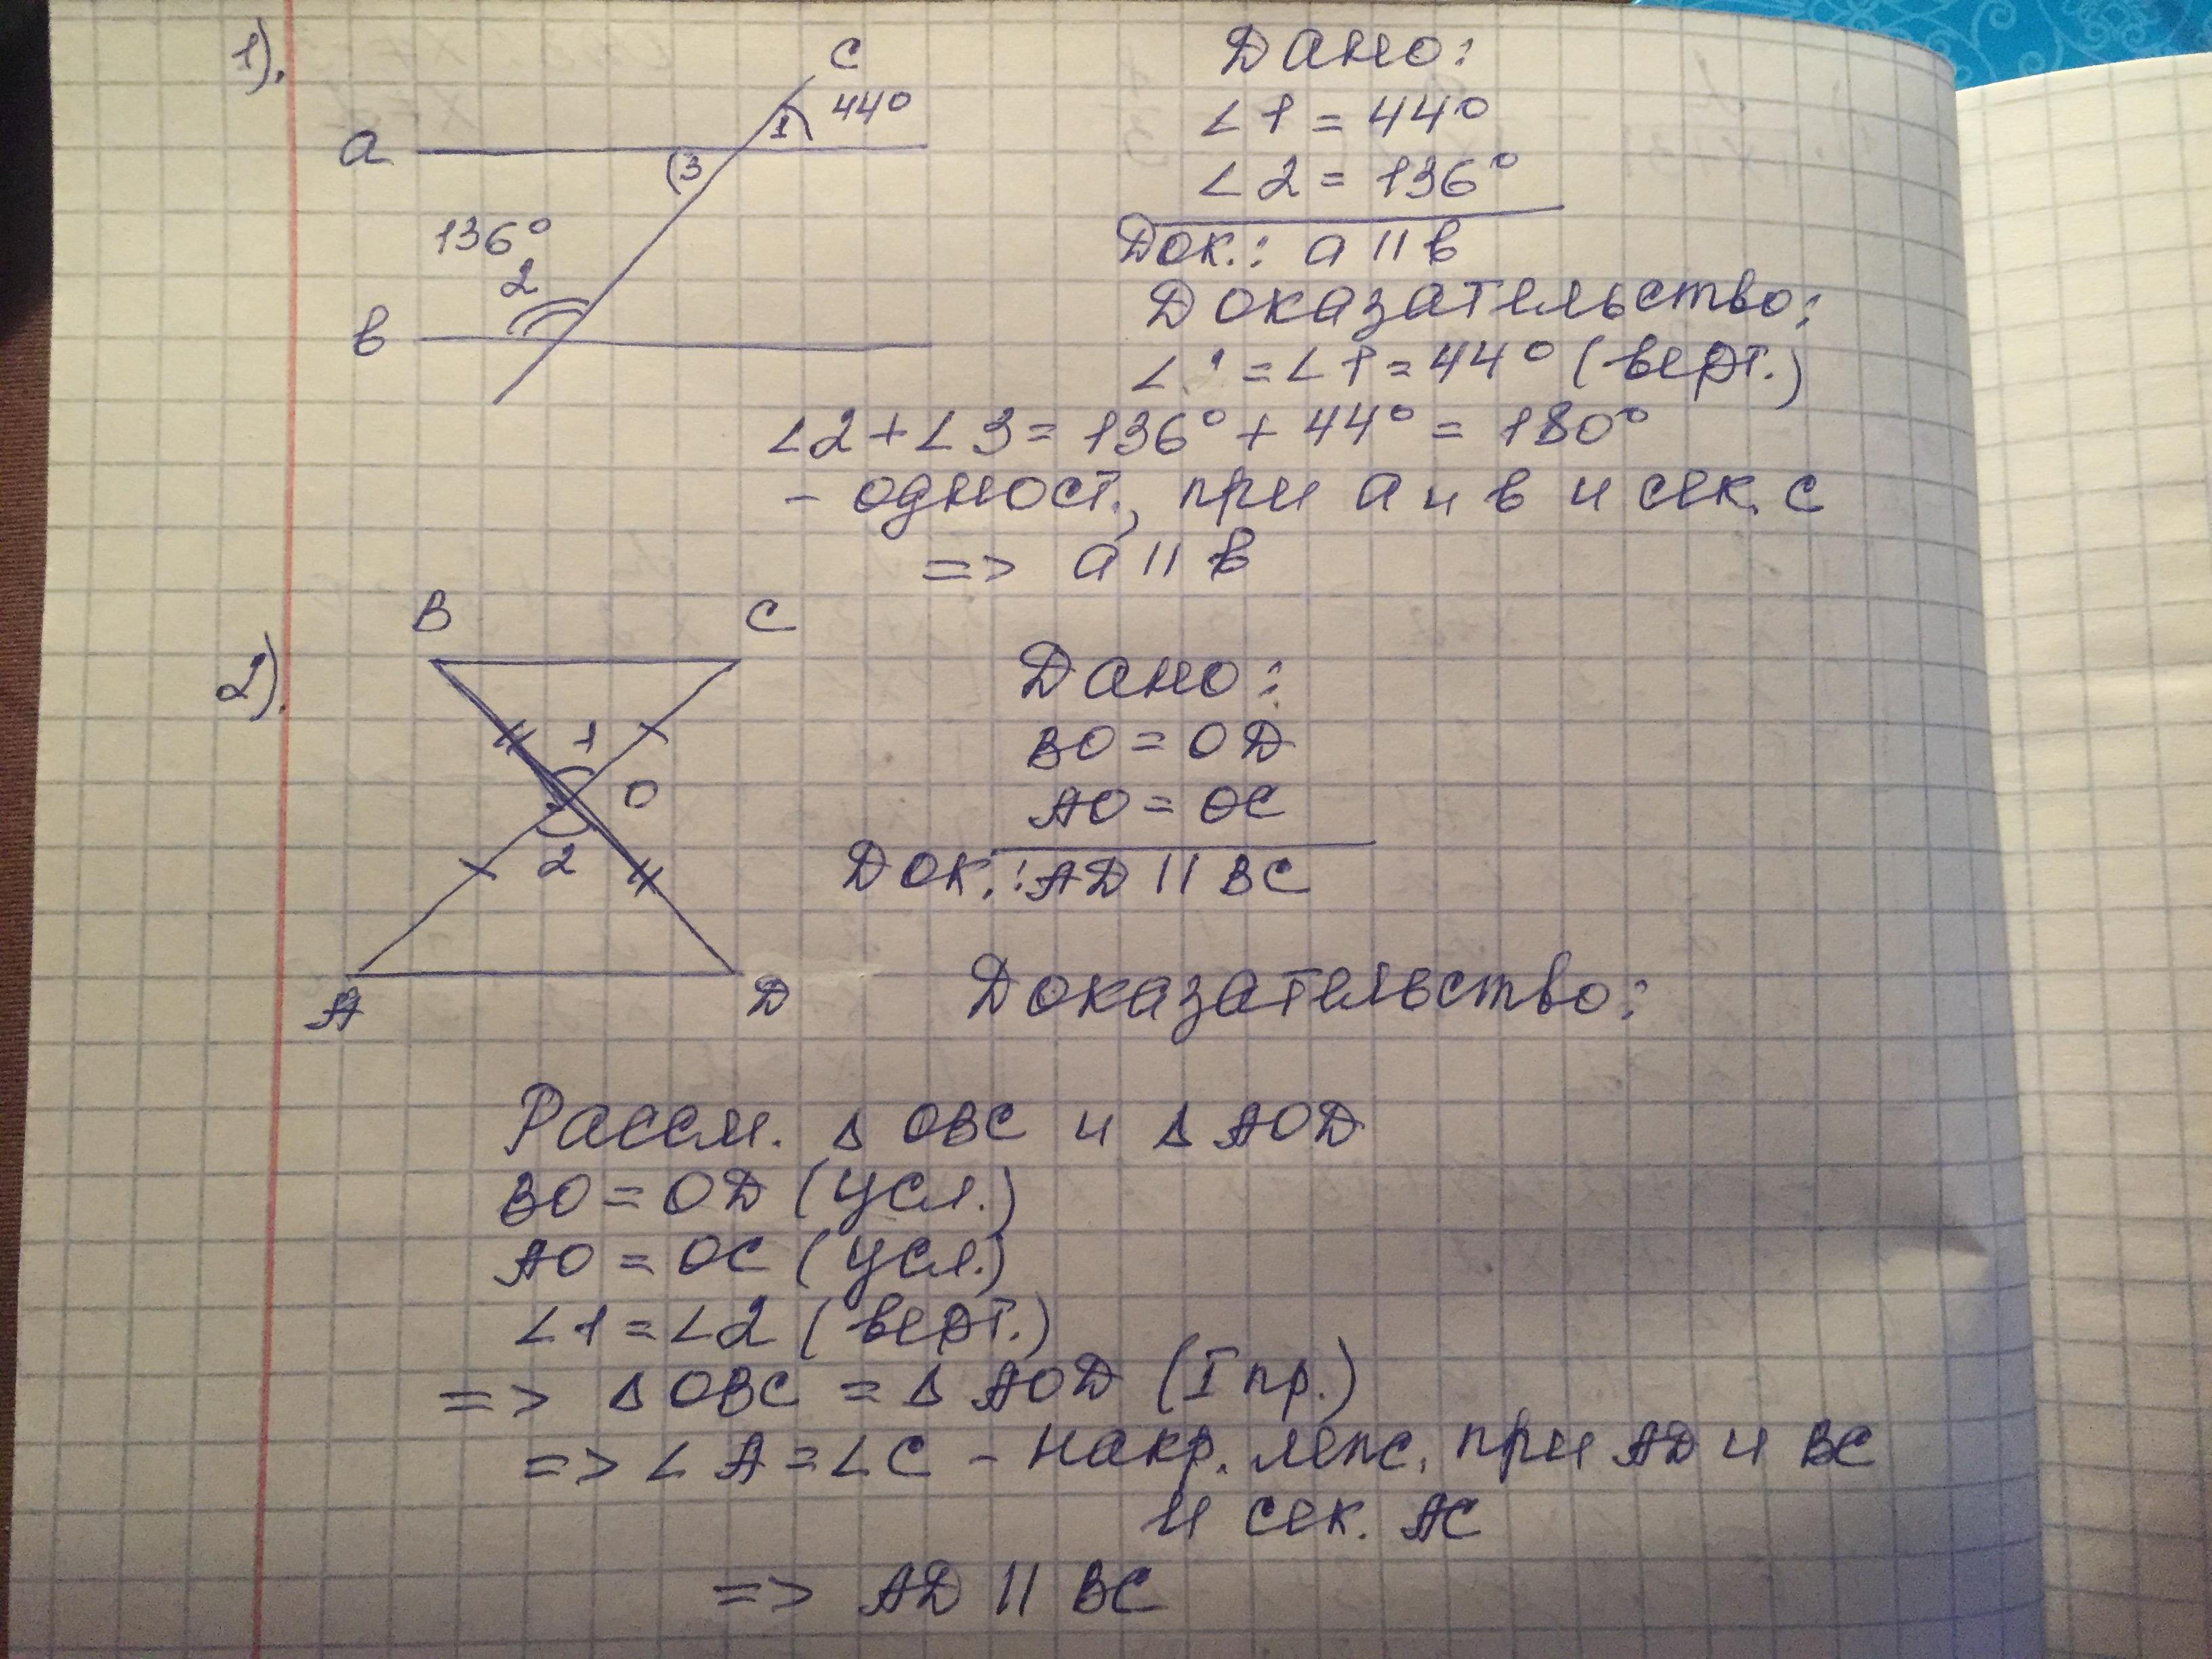 1).
c
44°
1
a
3
136°
2
в
Дано:
∠1 = 44°
∠2 = 136°
Док.: a || в
Доказательство:
∠ = ∠1 = 44° (верт.)
∠2 + ∠3 = 136° + 44° = 180°
- одност., при a и в и сек. c
=> a || в
2).
B
C
1
O
2
A
D
Дано:
BO = OD
AO = OC
Док.: AD || BC
Доказательство:
Рассм. Δ OBC и Δ AOD
BO = OD (усл.)
AO = OC (усл.)
∠1 = ∠2 (верт.)
=> Δ OBC = Δ AOD (I пр.)
=> ∠A = ∠C - накр. леж. при AD и BC
и сек. AC
=> AD || BC